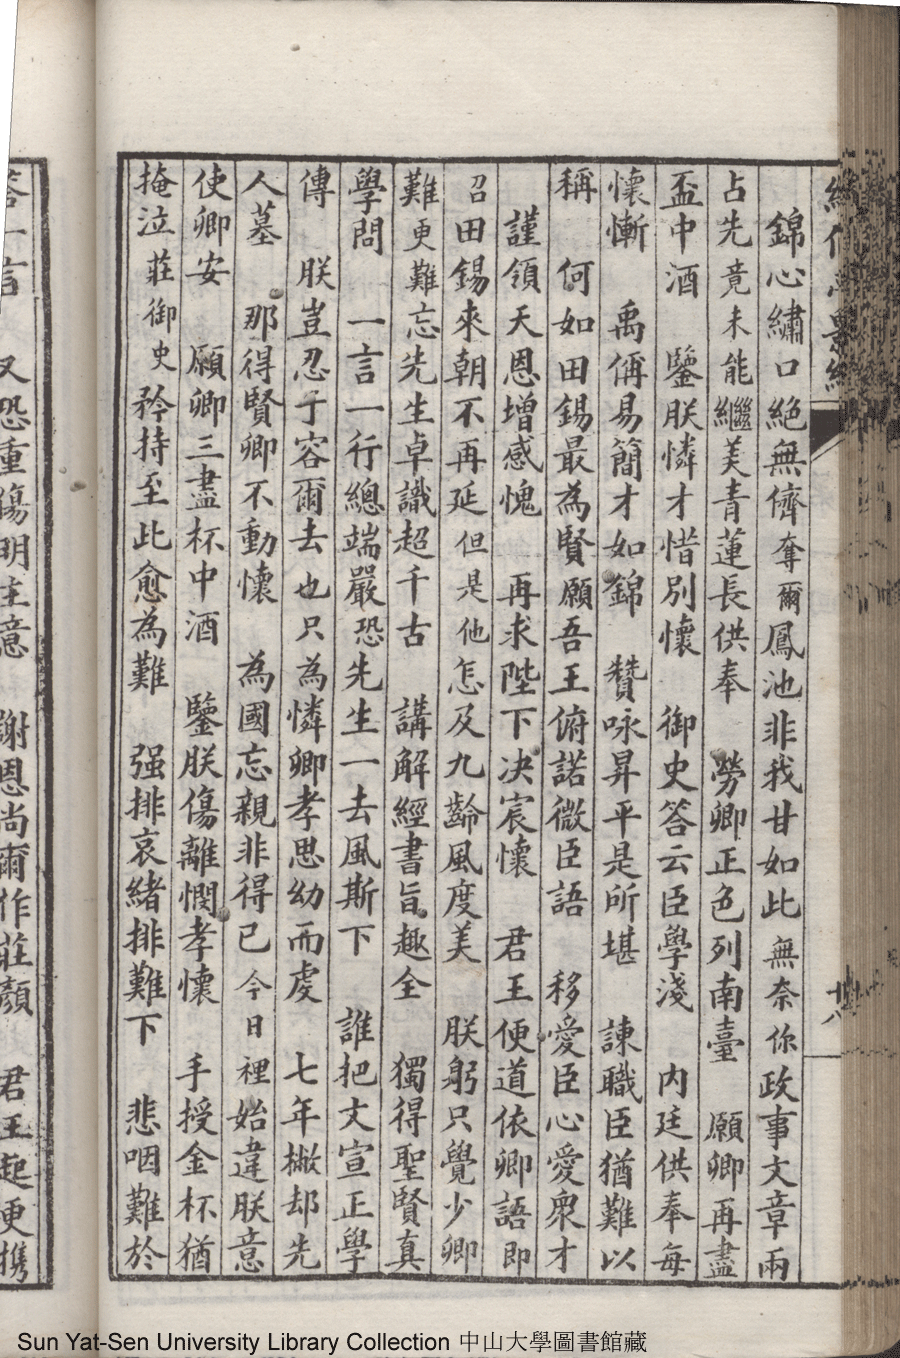 錦心繡口絕無儕奪爾鳳池非我甘如此無奈你政事文章兩
占先竟未能繼美青蓮長供奉　勞卿正色列南臺　願卿再盡
盃中酒　鑒朕憐才惜別懷　御史答云臣學淺　內廷供奉每
懷慚　禹偁易簡才如錦　贊咏昇平是所堪　諫職臣猶難以
稱　何如田錫最為賢願吾王俯諾微臣語　移愛臣心愛衆才
謹領天恩增感愧　再求陛下决宸懷　君王便道依卿語即
召田錫來朝不再延但是他怎及九齡風度美　朕躬只覺少卿
難更難忘先生卓識超千古　講解經書旨趣全　獨得聖賢真
學問　一言一行總端嚴恐先生一去風斯下　誰把文宣正學
傳　朕豈忍于容爾去也只為憐卿孝思幼而虔　七年撇却先
人墓　那得賢卿不動懷　為國忘親非得已今日裡始違朕意
使卿安　願卿三盡杯中酒　鑒朕傷離憫孝懷　手授金杯猶
掩泣莊御史矜持至此愈為難　强排哀緒排難下　悲咽難於
又恐重傷明主意　謝恩尚爾作莊顏　君王起更携
Sun Yat-Sen University Library Collection 中山大學圖書館藏